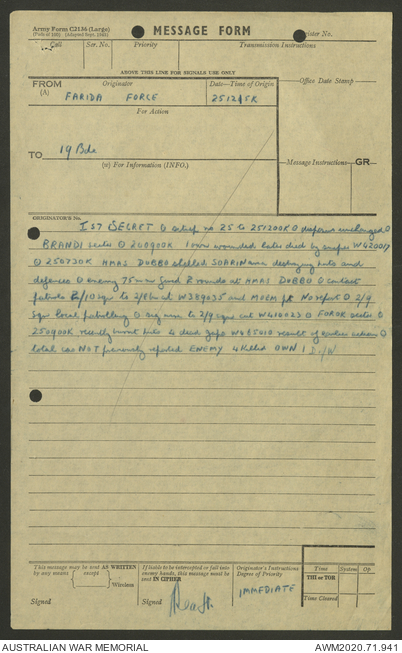 Army Form C2136 (Large)
MESSAGE FORM
Register No.
Call
Ser. No.
Priority
Transmission Instructions
ABOVE THIS LINE FOR SIGNALS USE ONLY
FROM
(A)
Originator
FARIDA FORCE
Date—Time of Origin
251215K
Office Date Stamp
For Action
TO
19 Bde
(W) For Information (INFO.)
Message Instructions
GR
ORIGINATOR'S No.
1 ST SECRET O sitrep no 25 to 251200K O unchanged O
BRANDI sector O 200900K 1 wounded later died by W420017
O 250730K AMAS DUBBO shelled SOARIN area destroying huts and
defences O enemy 75mm fired 2 rounds at AMAS DUBBO O contact
patrols 2/10 sqn to 2/8 bn at W389035 and MOEM pt No report O 2/9
sqn local patrolling O sig line to 2/9 sqn cut W410023 O FOROK sector O
250900K 4 dead Japs W485010 result of earlier action O
total cas NOT previously reported ENEMY 4 killed OWN 1
This message may be sent AS WRITTEN
by any means
except
Wireless
If liable to be intercepted or fall into
enemy hands, this message must be
sent IN CIPHER
Originator's Instructions
Degree of Priority
IMMEDIATE
Time
System
Op
THI or TOR
Time Cleared
Signed
Signed
AUSTRALIAN WAR MEMORIAL
AWM2020.71.941